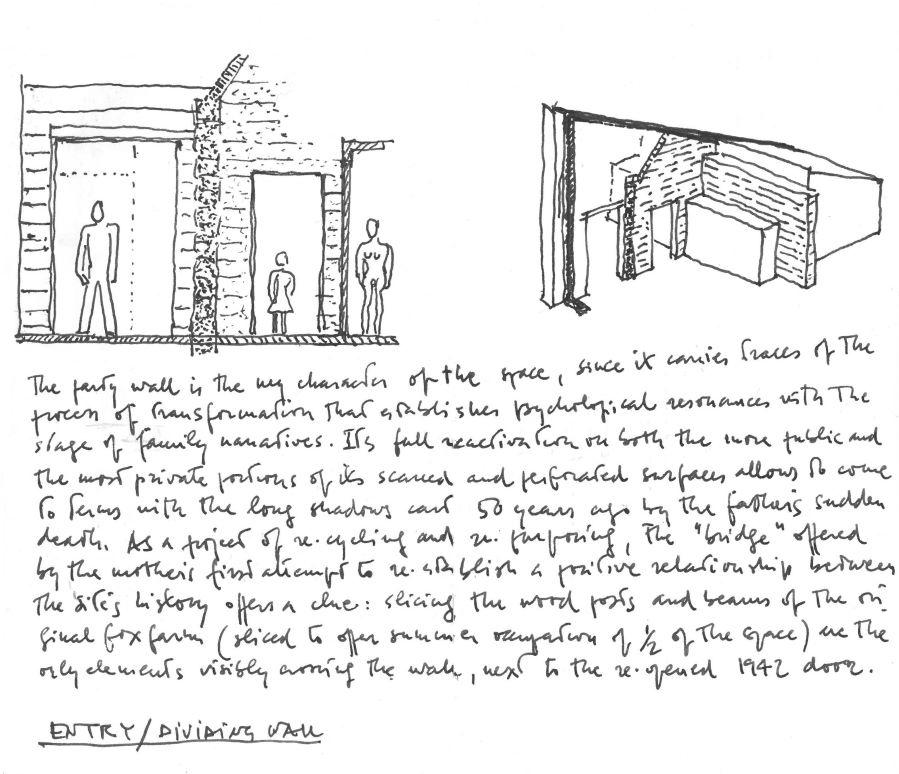 The party wall is the key character of the space, since it carries traces of the
process of transformation that establishes psychological resonances with the
stage of family narratives. Its full reactivation on both the more public and
the most private portions of its scarred and perforated surfaces allows to come
to terms with the long shadows cast 50 years ago by the father's sudden
death. As a project of re-cycling and re-purposing, the "bridge" offered
by the mother's first attempt to re-establish a positive relationship between
the site's history offers a clue: slicing the wood posts and beams of the ori-
ginal fox farm (sliced to offer summer occupation of 1/2 of the space) are the
only elements visibly crossing the wall, next to the re-opened 1942 door.
ENTRY/DIVIDING WALL